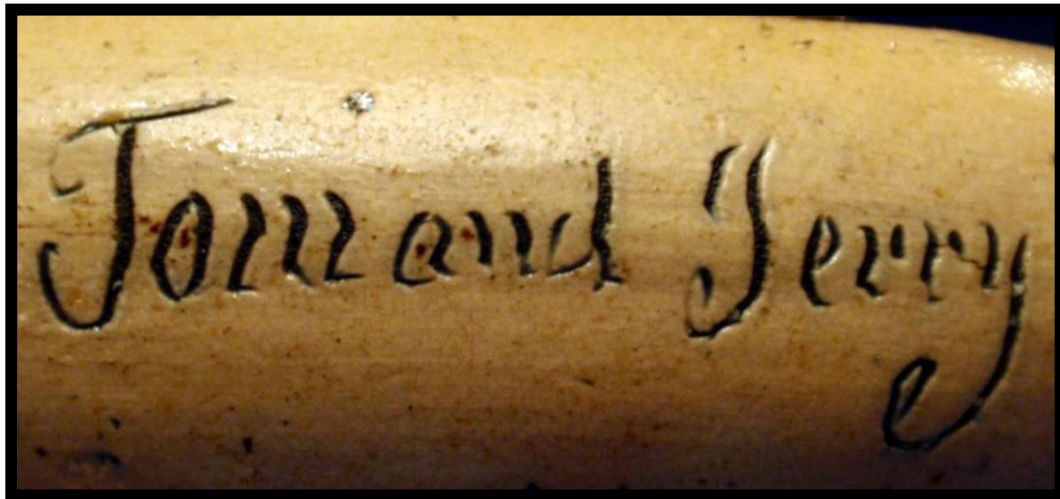 Tom and Jerry